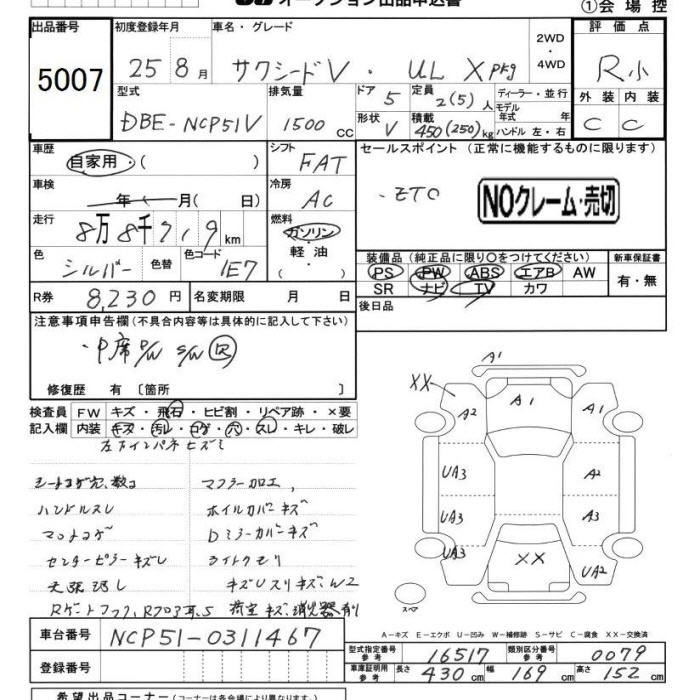 オークション出品申込書
①会場控
出品番号 初度登録年月 車名・グレード 2WD・4WD 評価点
5007 25年8月 サクシードV・UL Xpkg R小
型式 排気量 ドア 5 定員 2(5)人 ディーラー・並行 外装 内装
モデル年式 年
DBE-NCP51V 1500cc 形状 V 積載 450(250)kg ハンドル 左・右 C C
車歴 シフト セールスポイント (正常に機能するものに限ります)
自家用・( ) FAT
車検 冷房 ・ETC NOクレーム・売切
年 月( 日) AC
走行 燃料
8万8千719km ガソリン・
色 色替 色コード 軽油・ 装備品(純正品に限り○をつけてください) 新車保証書
シルバー 1E7 ( ) PS PW ABS エアB AW 有・無
R券 8,230円 名変期限 月 日 SR ナビ TV カワ
後日品
注意事項申告欄(不具合内容等は具体的に記入して下さい)
修復歴 有 〔箇所 〕
検査員 FW キズ・飛石・ヒビ割・リペア跡・×要
記入欄 内装 キズ・汚レ・コゲ・穴・スレ・キレ・破レ
左カインパネヒズミ
シートコゲ穴、数コ マフラー加工、
ハンドルスレ ホイルカバーキズ
マットコゲ Dミラーカバーキズ
センターピラーキズし ライトクモリ
天張汚し キズUスリキズ、W2
A1
XX A2 A1 A1
UA3 A2
UA3 A3
UA3 XX UA2
スペア
A-キズ E-エクボ U-凹み W-補修跡 S-サビ C-腐食 XX-交換済
車台番号 NCP51-0311467
型式指定番号 参考 16517 類別区分番号 参考 0079
登録番号 車庫証明用 参考 長さ 430cm 幅 169cm 高さ 152cm
希望出品コーナー(コーナーは各会場により異なります)